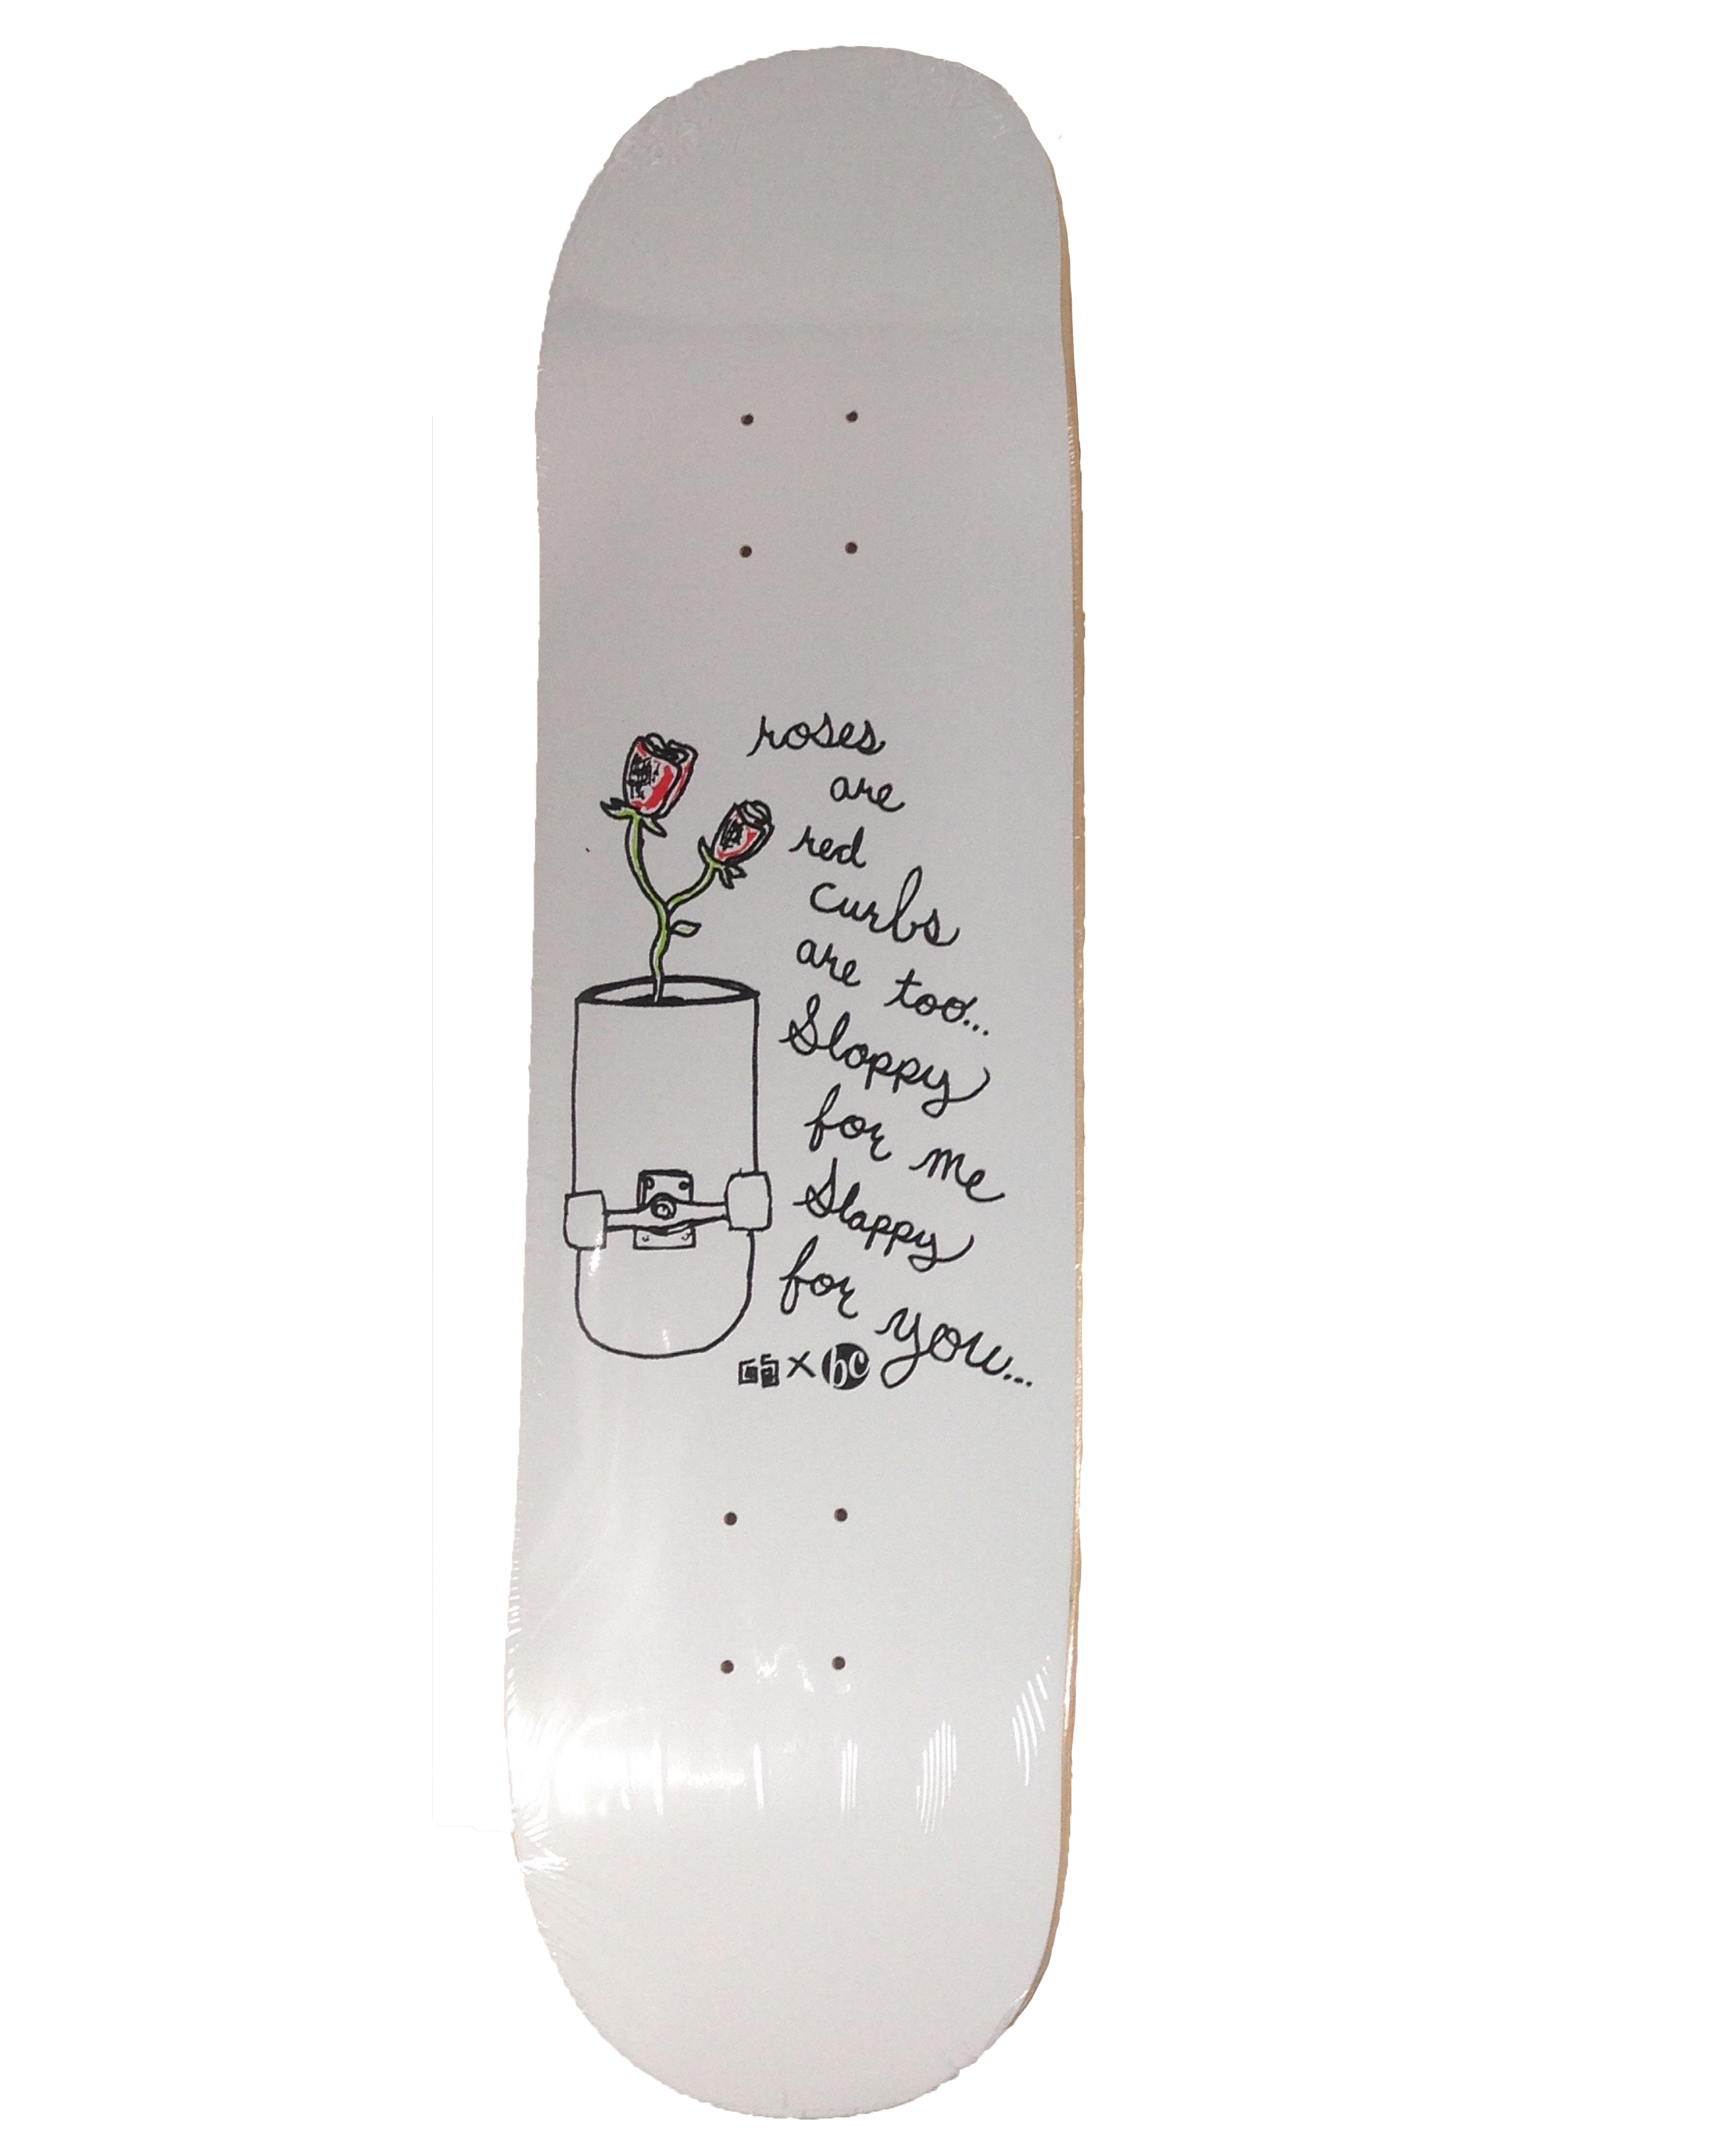 roses
are
red
curbs
are too...
Sloppy
for me
Slappy
for you...
X bc